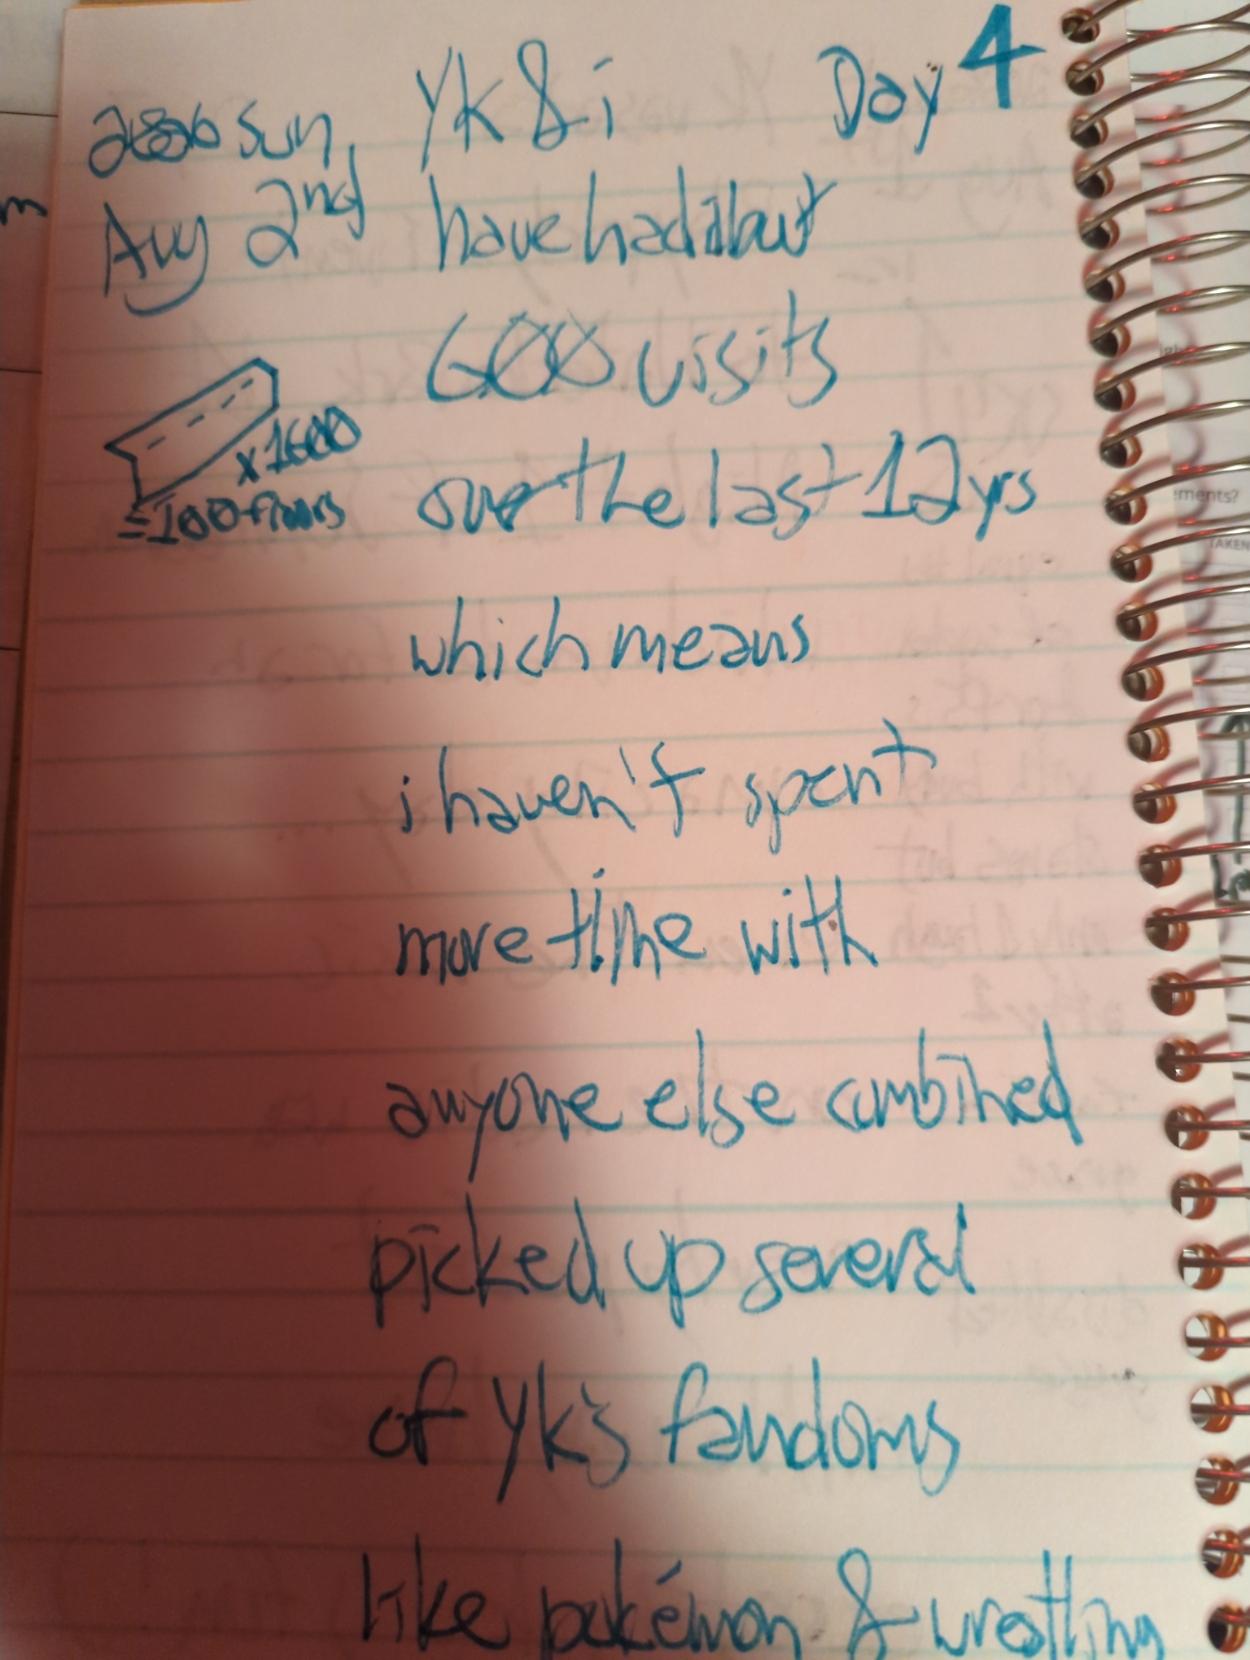 2026 Sun, YK & i Day 4
Aug 2nd have had about
600 visits
x1600
=100+floors
over the last 12 yrs
which means
i haven't spent
more time with
anyone else combined
picked up several
of YK's fandoms
like pokémon & wrestling
ements?
TAKEN